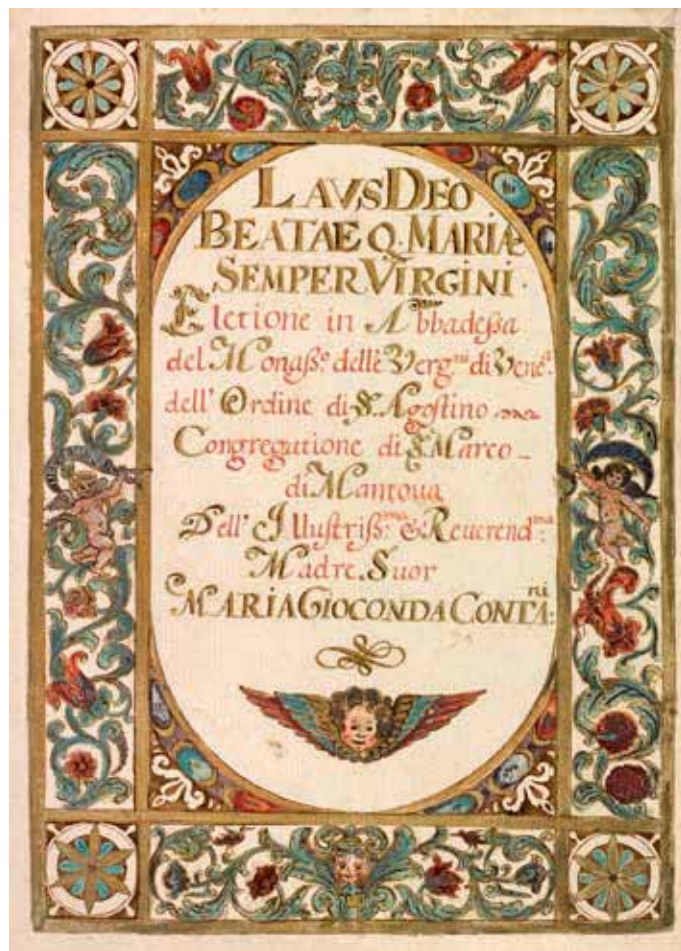 LAVS DEO
BEATAE Q. MARIÆ
SEMPER VIRGINI.
Eletione in Abbadeſsa
del Monaſs.º delle Verg.ni di Vene.ª
dell' Ordine di S. Agoſtino
Congregatione di S. Marco
di Mantoua
Dell' Illuſtriſs:ma & Reuerend:ma
Madre Suor
MARIA GIOCONDA CONTA:ni